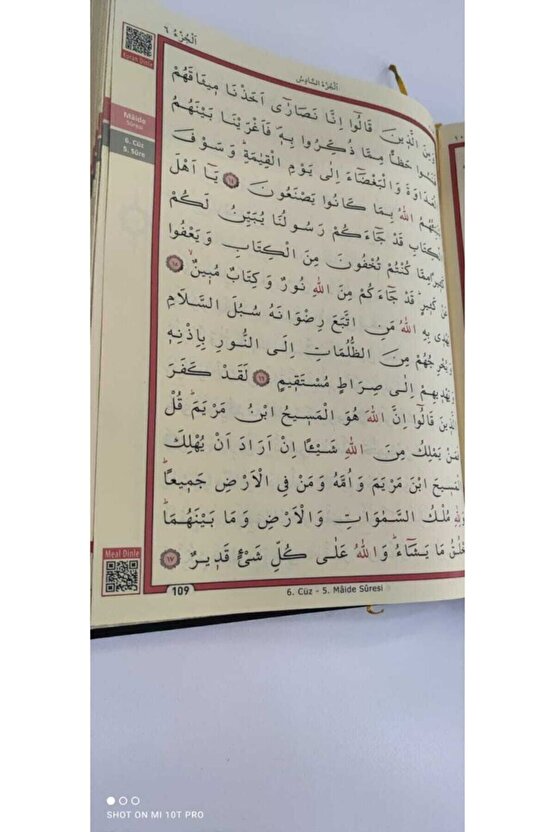 اَلْجُزْءُ ٦
اَلْجُزْءُ السَّادِسُ
Kuran Dinle
Mâide
Sûresi
6. Cüz
5. Sûre
وَمِنَ الَّذ۪ينَ قَالُٓوا اِنَّا نَصَارٰٓى اَخَذْنَا م۪يثَاقَهُمْ
فَنَسُوا حَظًّا مِمَّا ذُكِّرُوا بِه۪ۖ فَاَغْرَيْنَا بَيْنَهُمُ
الْعَدَاوَةَ وَالْبَغْضَٓاءَ اِلٰى يَوْمِ الْقِيٰمَةِۜ وَسَوْفَ
يُنَبِّئُهُمُ اللّٰهُ بِمَا كَانُوا يَصْنَعُونَ ﴿١٤﴾ يَٓا اَهْلَ
الْكِتَابِ قَدْ جَٓاءَكُمْ رَسُولُنَا يُبَيِّنُ لَكُمْ
كَث۪يرًا مِمَّا كُنْتُمْ تُخْفُونَ مِنَ الْكِتَابِ وَيَعْفُوا
عَنْ كَث۪يرٍۜ قَدْ جَٓاءَكُمْ مِنَ اللّٰهِ نُورٌ وَكِتَابٌ مُب۪ينٌۙ ﴿١٥﴾
يَهْد۪ي بِهِ اللّٰهُ مَنِ اتَّبَعَ رِضْوَانَهُ سُبُلَ السَّلَامِ
وَيُخْرِجُهُمْ مِنَ الظُّلُمَاتِ اِلَى النُّورِ بِاِذْنِه۪
وَيَهْد۪يهِمْ اِلٰى صِرَاطٍ مُسْتَق۪يمٍ ﴿١٦﴾ لَقَدْ كَفَرَ
الَّذ۪ينَ قَالُٓوا اِنَّ اللّٰهَ هُوَ الْمَس۪يحُ ابْنُ مَرْيَمَۜ قُلْ
فَمَنْ يَمْلِكُ مِنَ اللّٰهِ شَيْـًٔا اِنْ اَرَادَ اَنْ يُهْلِكَ
الْمَس۪يحَ ابْنَ مَرْيَمَ وَاُمَّهُ وَمَنْ فِي الْاَرْضِ جَم۪يعًاۜ
وَلِلّٰهِ مُلْكُ السَّمٰوَاتِ وَالْاَرْضِ وَمَا بَيْنَهُمَاۜ
يَخْلُقُ مَا يَشَٓاءُۜ وَاللّٰهُ عَلٰى كُلِّ شَيْءٍ قَد۪يرٌ ﴿١٧﴾
Meal Dinle
109
6. Cüz - 5. Mâide Sûresi
SHOT ON MI 10T PRO